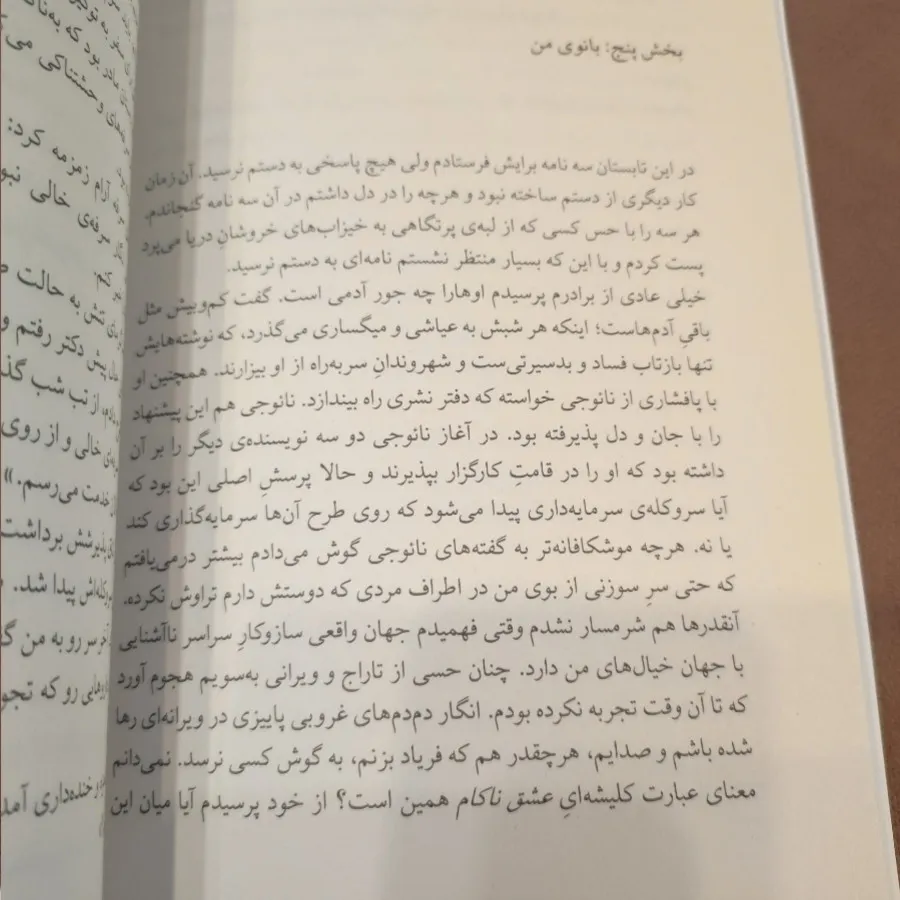 بخش پنج: بانوی من
در این تابستان سه نامه برایش فرستادم ولی هیچ پاسخی به دستم نرسید. آن زمان
کار دیگری از دستم ساخته نبود و هرچه را در دل داشتم در آن سه نامه گنجاندم.
هر سه را با حس کسی که از لبه‌ی پرتگاهی به خیزاب‌های خروشانِ دریا می‌پرد
پست کردم و با این که بسیار منتظر نشستم نامه‌ای به دستم نرسید.
خیلی عادی از برادرم پرسیدم اوهارا چه جور آدمی است. گفت کم‌وبیش مثل
باقیِ آدم‌هاست؛ اینکه هر شبش به عیاشی و میگساری می‌گذرد، که نوشته‌هایش
تنها بازتاب فساد و بدسیرتی‌ست و شهروندانِ سربه‌راه از او بیزارند. همچنین او
با پافشاری از نائوجی خواسته که دفتر نشری راه بیندازد. نائوجی هم این پیشنهاد
را با جان و دل پذیرفته بود. در آغاز نائوجی دو سه نویسنده‌ی دیگر را بر آن
داشته بود که او را در قامتِ کارگزار بپذیرند و حالا پرسشِ اصلی این بود که
آیا سروکله‌ی سرمایه‌داری پیدا می‌شود که روی طرح آن‌ها سرمایه‌گذاری کند
یا نه. هرچه موشکافانه‌تر به گفته‌های نائوجی گوش می‌دادم بیشتر درمی‌یافتم
که حتی سرِ سوزنی از بوی من در اطراف مردی که دوستش دارم تراوش نکرده.
آنقدرها هم شرمسار نشدم وقتی فهمیدم جهان واقعی سازوکارِ سراسر ناآشنایی
با جهان خیال‌های من دارد. چنان حسی از تاراج و ویرانی به‌سویم هجوم آورد
که تا آن وقت تجربه نکرده بودم. انگار دم‌دم‌های غروبی پاییزی در ویرانه‌ای رها
شده باشم و صدایم، هرچقدر هم که فریاد بزنم، به گوش کسی نرسد. نمی‌دانم
معنای عبارت کلیشه‌ایِ عشق ناکام همین است؟ از خود پرسیدم آیا میان این
آرام زمزمه کرد:
سرفه‌ی خالی نبو
کنم.
تنش به حالت
پیش دکتر رفتم و
از تب شب گذ
خالی و از روی
خدمت می‌رسم.»
پذیرشش برداشت
پیدا شد.
سر رو به من گ
رو که تجو
خنده‌داری آمد